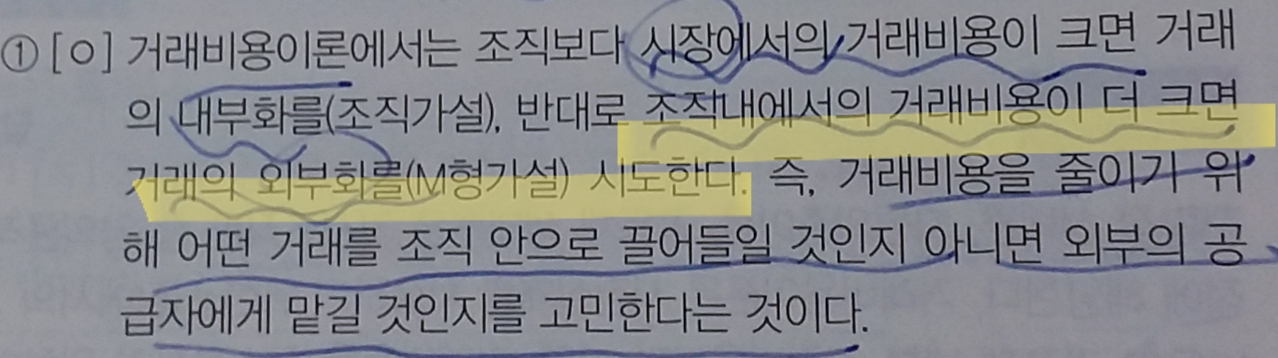 ① [○] 거래비용이론에서는 조직보다 시장에서의 거래비용이 크면 거래
의 내부화를(조직가설), 반대로 조직내에서의 거래비용이 더 크면
거래의 외부화를(M형가설) 시도한다. 즉, 거래비용을 줄이기 위
해 어떤 거래를 조직 안으로 끌어들일 것인지 아니면 외부의 공
급자에게 맡길 것인지를 고민한다는 것이다.